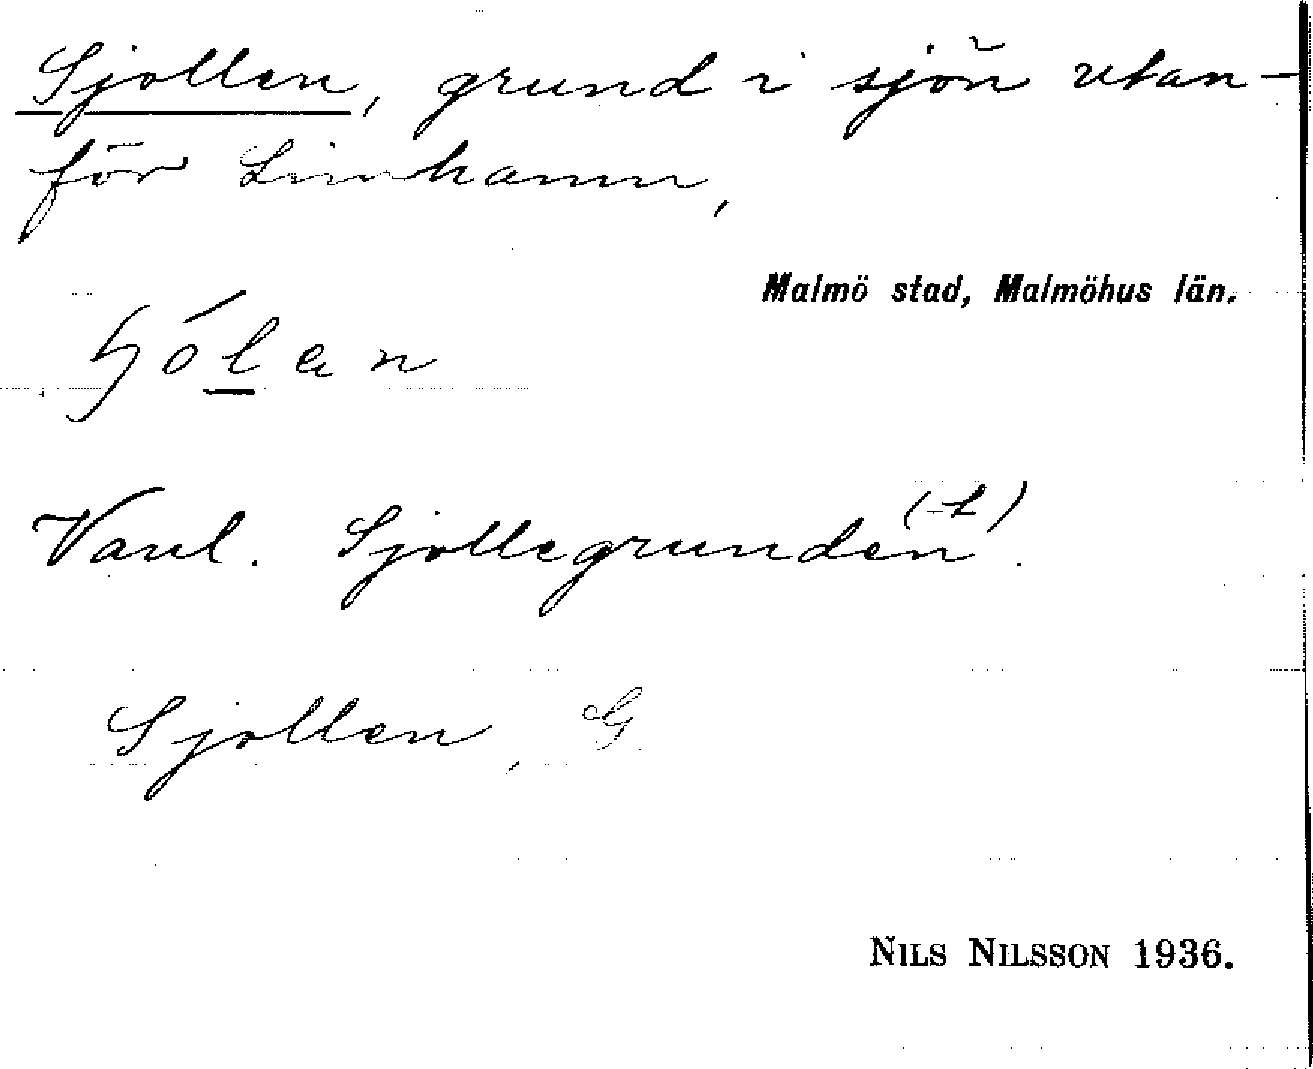 Sjollen, grund i sjön utan-
för Limhamn,
Malmö stad, Malmöhus län.
Vanl. Sjollegrunden (-L).
Sjollen, G
NILS NILSSON 1936.